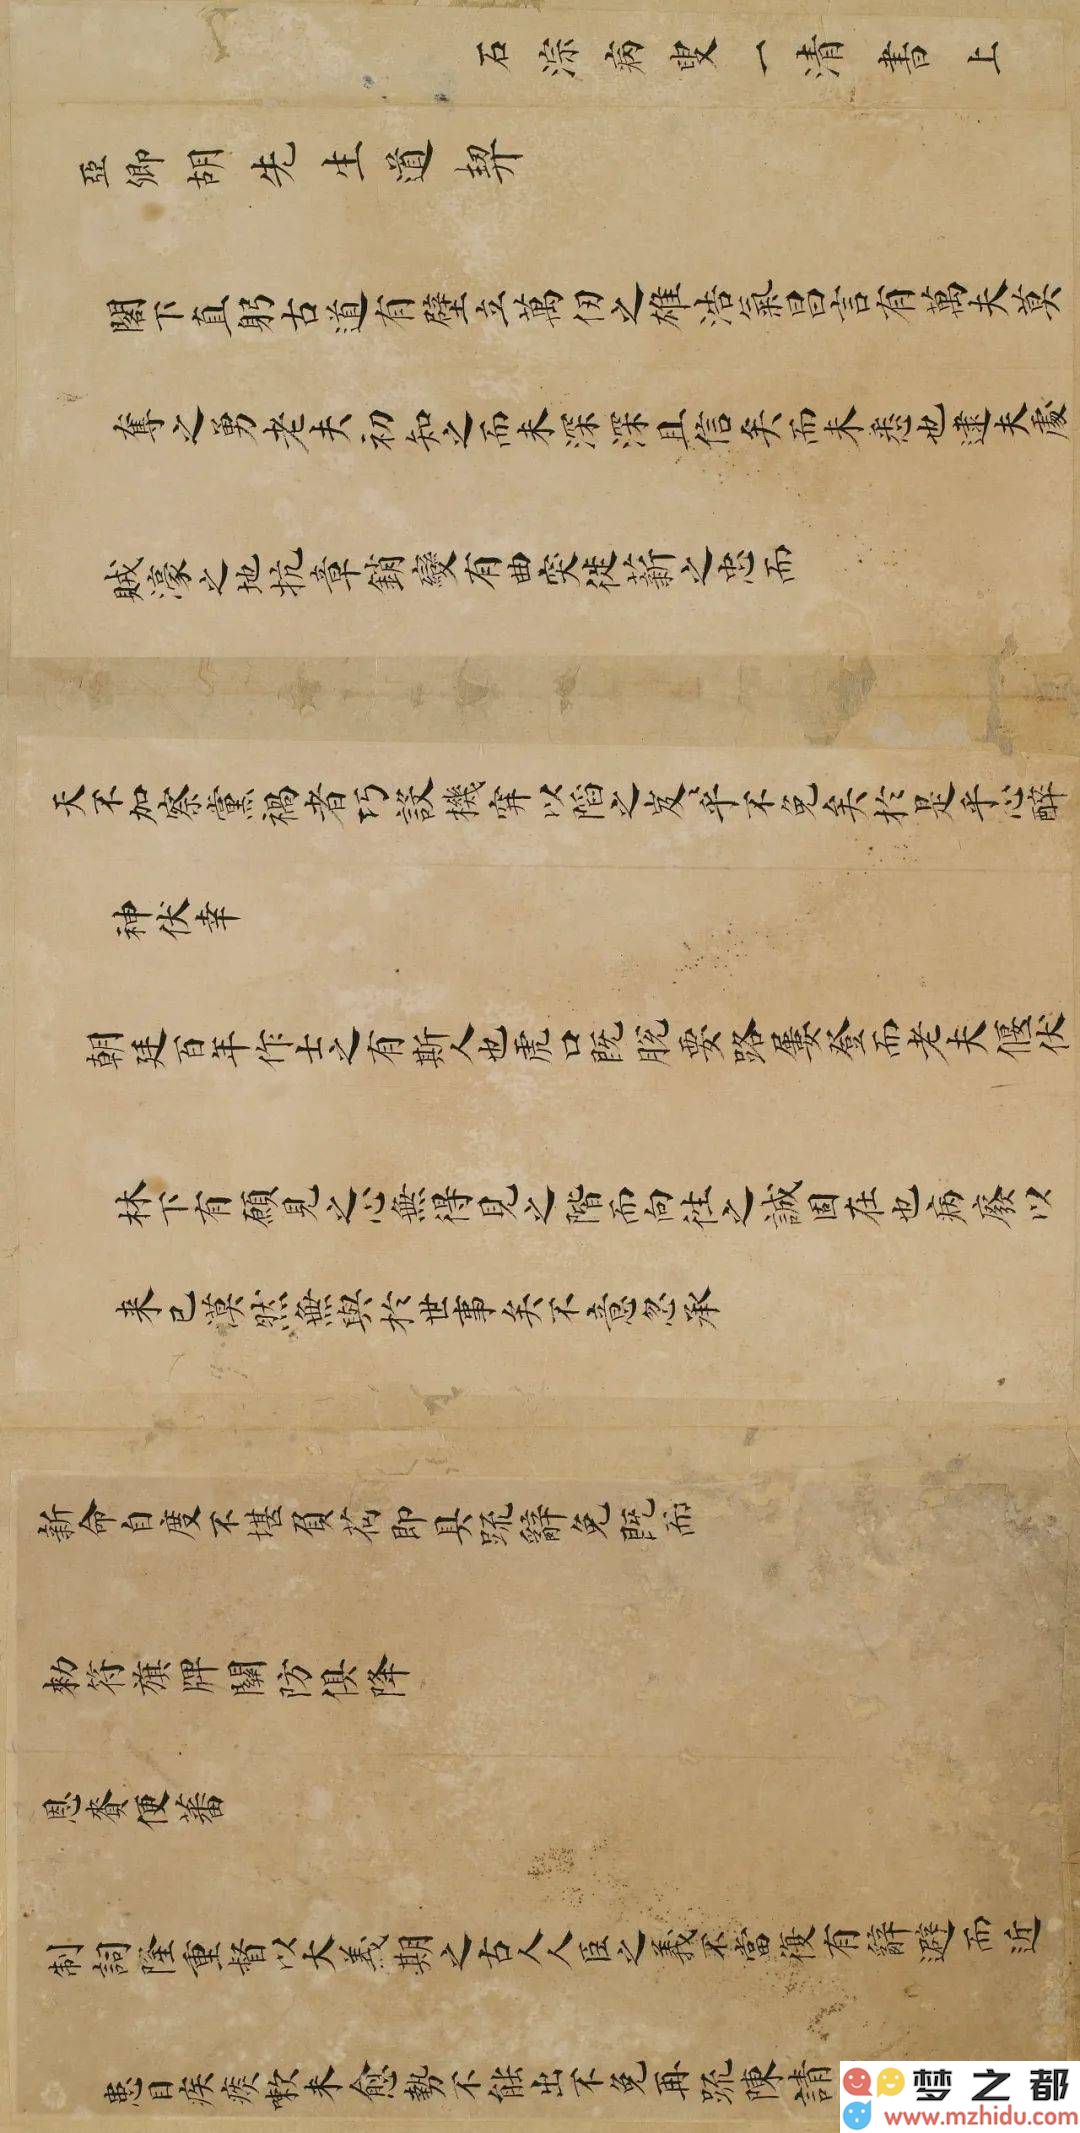 石淙病叟一清書上
亞卿胡先生道契
閣下直躬古道有壁立萬仞之雄浩氣昌言有萬夫莫
奪之勇老夫初知之而未深深且信矣而未悉也逮夫處
賊濠之地抗章銷變有曲突徙薪之忠而
天不加察黨禍者巧設機穽以陷之岌乎不免矣於是乎心醉
神伏幸
朝廷百年作士之有斯人也虎口既脫要路屢登而老夫偃伏
林下有願見之心無得見之階而向往之誠固在也病廢以
来已漠然無與於世事矣不意忽承
新命自度不堪負荷即具疏辭免既而
勑符旗牌關防俱降
恩賚便蕃
制詞隆重督以大義期之古人人臣之義不當復有辭避而近
患目疾痰嗽未愈勢不能出不免再疏陳請
梦之都
www.mzhidu.com